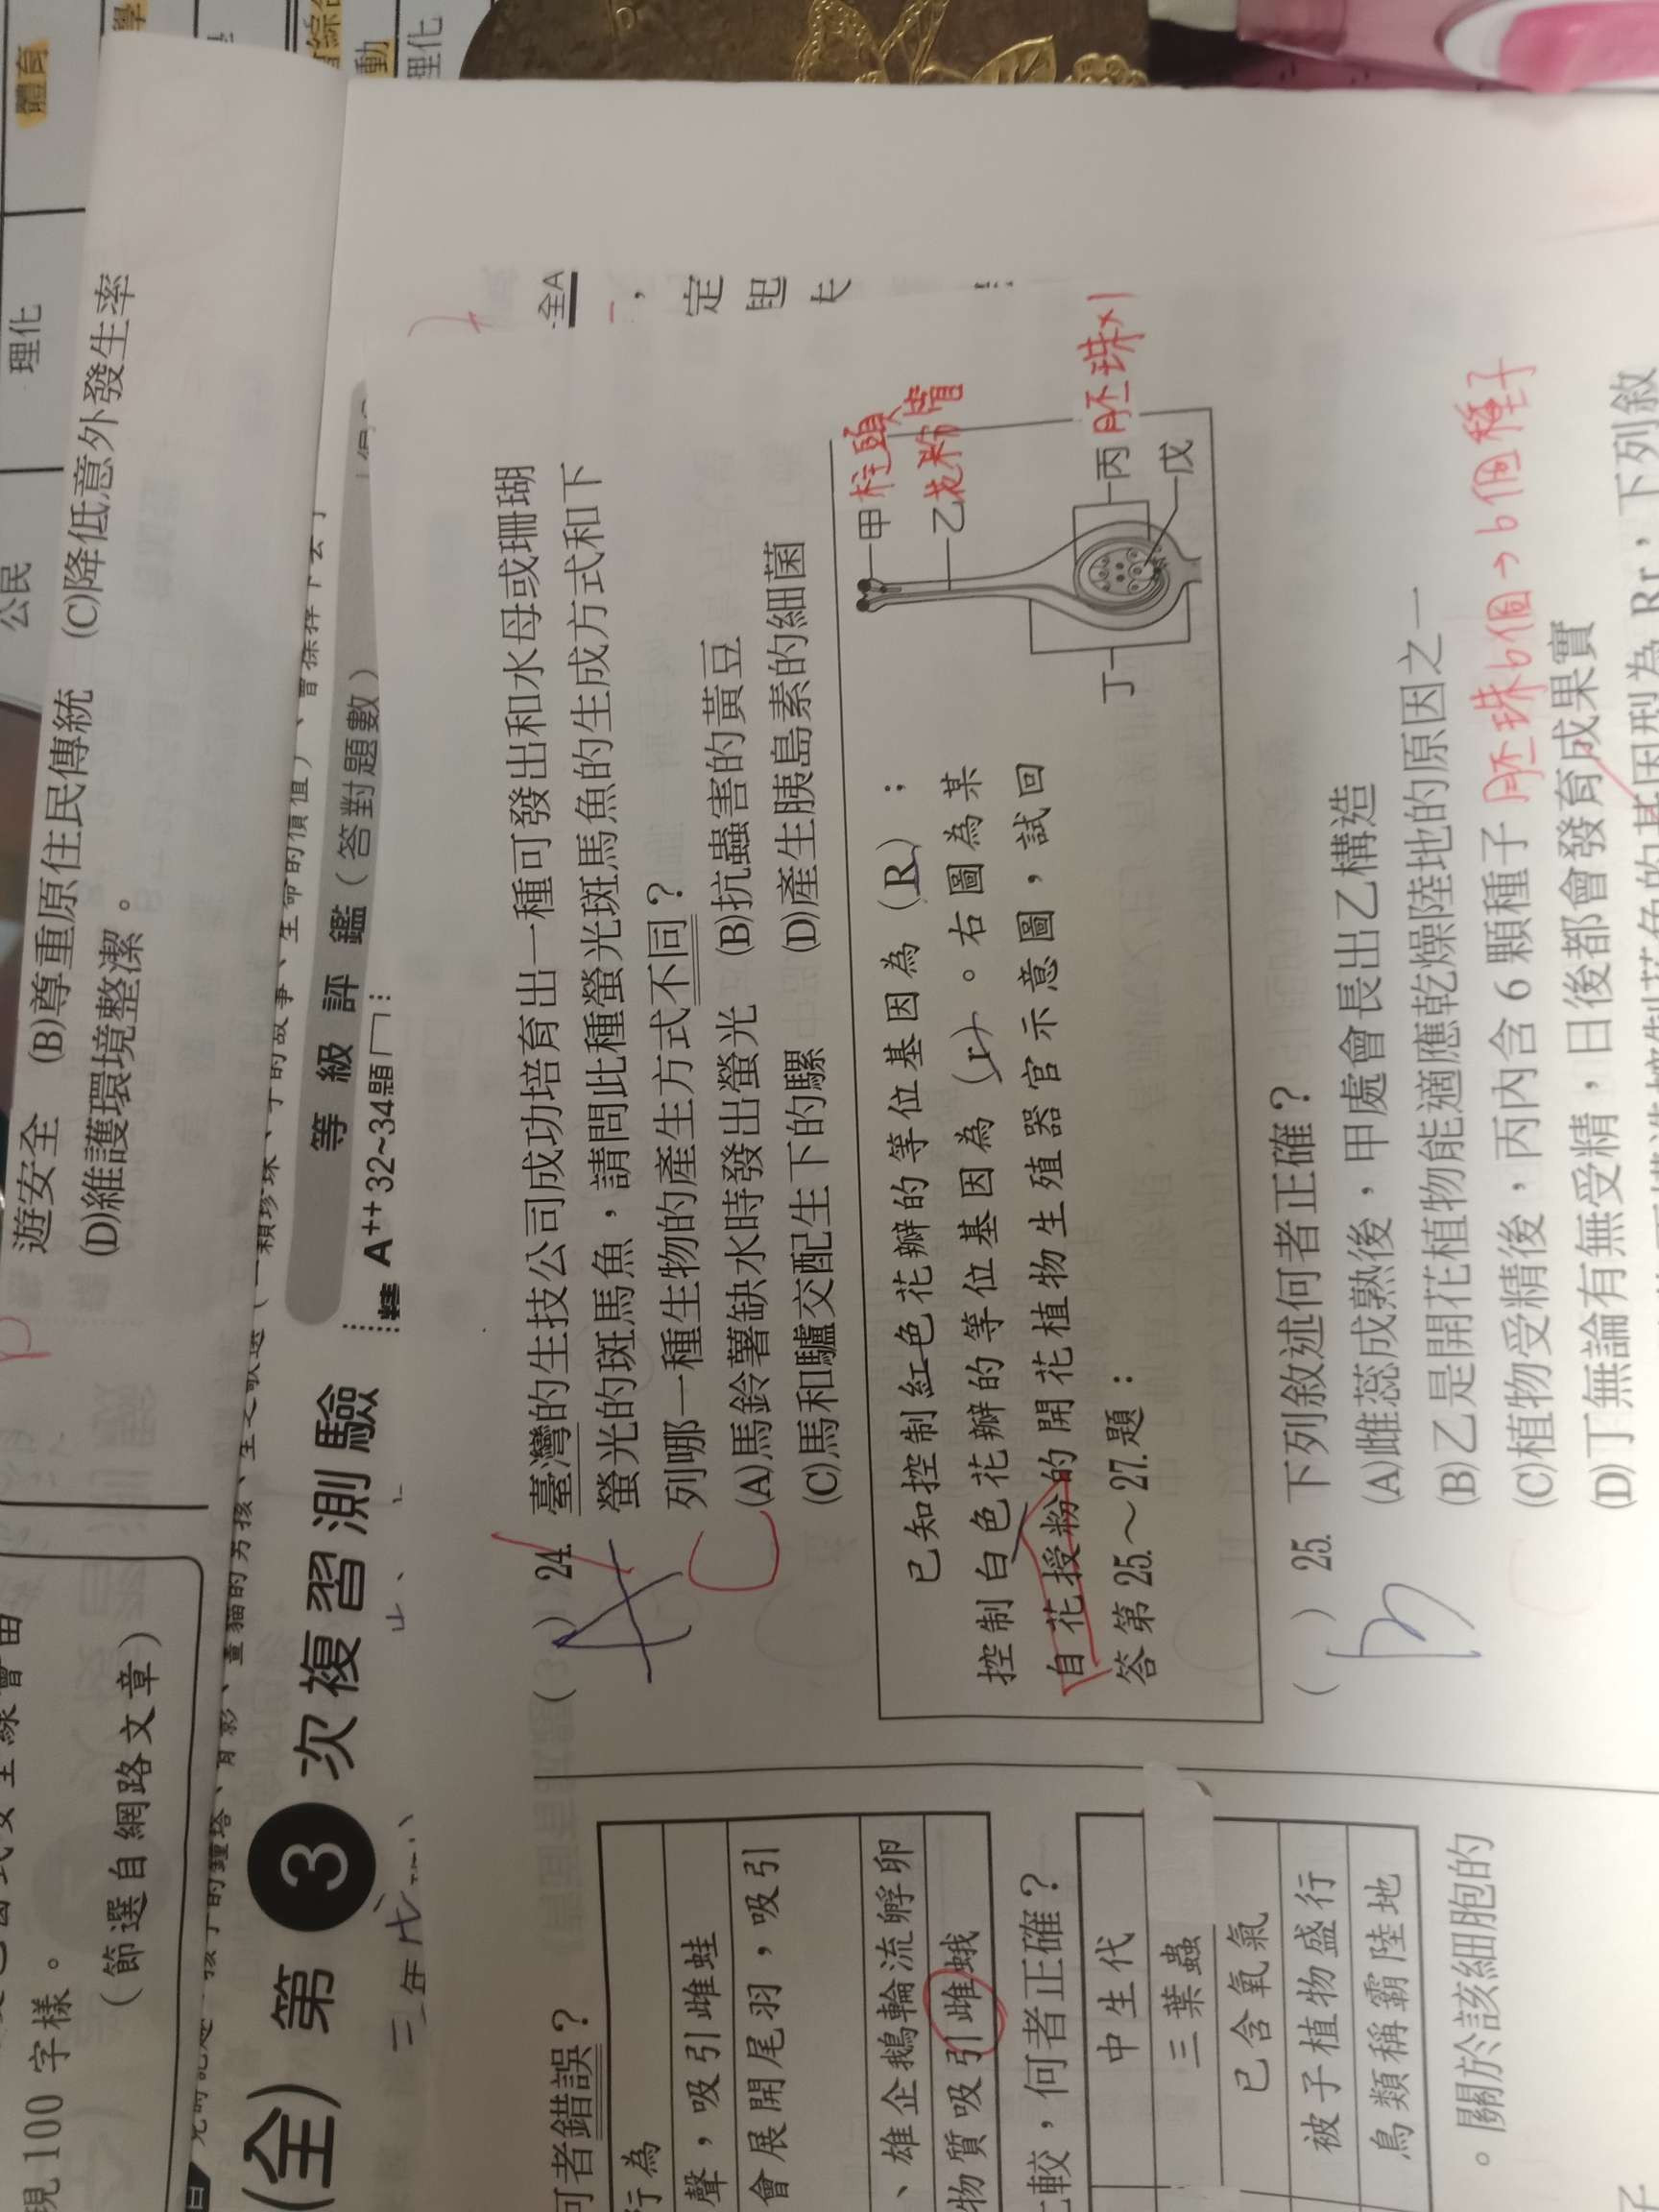 體育
理化
公民
動
理化
遊安全 (B)尊重原住民傳統 (C)降低意外發生率
(D)維護環境整潔。
現100字樣。
(節選自網路文章)
(全) 第3次複習測驗
等級評鑑(答對題數)
A++32~34題
24. 臺灣的生技公司成功培育出一種可發出和水母或珊瑚
螢光的斑馬魚,請問此種螢光斑馬魚的生成方式和下
列哪一種生物的產生方式不同?
(A)馬鈴薯缺水時發出螢光 (B)抗蟲害的黃豆
(C)馬和驢交配生下的騾 (D)產生胰島素的細菌
A
C
已知控制紅色花瓣的等位基因為(R);
控制白色花瓣的等位基因為(r)。右圖為某
自花授粉的開花植物生殖器官示意圖,試回
答第25.~27.題:
甲 柱頭
乙 花粉管
丙 胚珠×1
丁
戊
( ) 25. 下列敘述何者正確?
(A)雌蕊成熟後,甲處會長出乙構造
(B)乙是開花植物能適應乾燥陸地的原因之一
(C)植物受精後,丙內含6顆種子 胚珠6個→6個種子
(D)丁無論有無受精,日後都會發育成果實
全A
定
何者錯誤?
行為
聲,吸引雌蛙
會展開尾羽,吸引
、雄企鵝輪流孵卵
物質吸引雌蛾
比較,何者正確?
中生代
三葉蟲
已含氧氣
被子植物盛行
鳥類稱霸陸地
。關於該細胞的